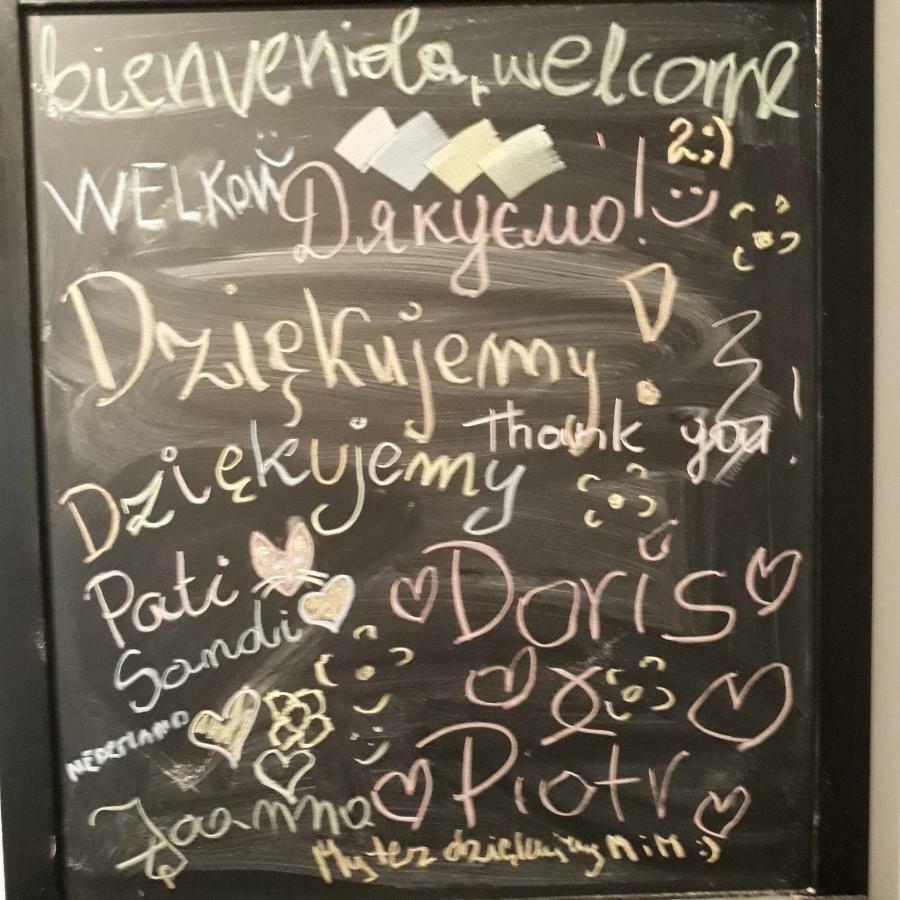 bienvenido, welcome
WELKOM
Дякуємо!
Dziękujemy!
Thank you!
Dziękujemy
Pati
Doris
Sandi
NEDERLAND
Piotr
Joanna
My też dziękujemy M i M :)